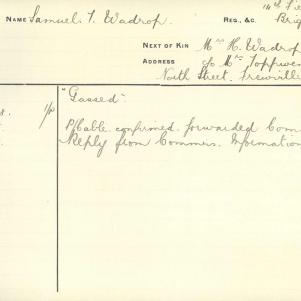 NAME Samuel T. Wadrop. REG., &C. 14th Fie
Brig
NEXT OF KIN Mrs H. Wadrop
ADDRESS c/o Mrs
North Street. Frewvill
8. 1/2 "Gassed"
P/Cable confirmed. forwarded Com
Reply from Commrs. Information